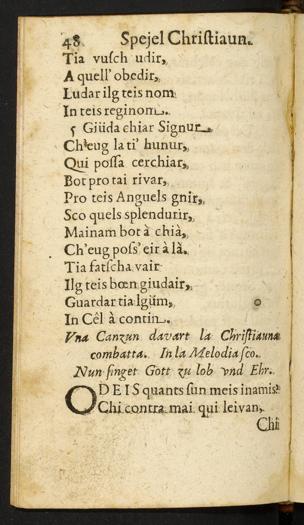 48 Spejel Chriſtiaun.
Tia vuſch udir,
A quell' obedir,
Ludar ilg teis nom
In teis reginom.
5 Giüda chiar Signur,
Ch'eug la ti' hunur,
Qui poſſa cerchiar,
Bot pro tai rivar,
Pro teis Anguels gnir,
Sco quels splendurir,
Mainam bot à chià,
Ch'eug poſs' eir à là.
Tia fatſcha vair
Ilg teis bœn giudair,
Guardar tia lgüm,
In Cêl à contin.
Vna Canzun davart la Chriſtiauna
combatta. In la Melodia ſco.
Nun ſinget Gott zu lob vnd Ehr.
ODEIS quants ſun meis inamis?
Chi contra mai qui leivan,
Chi